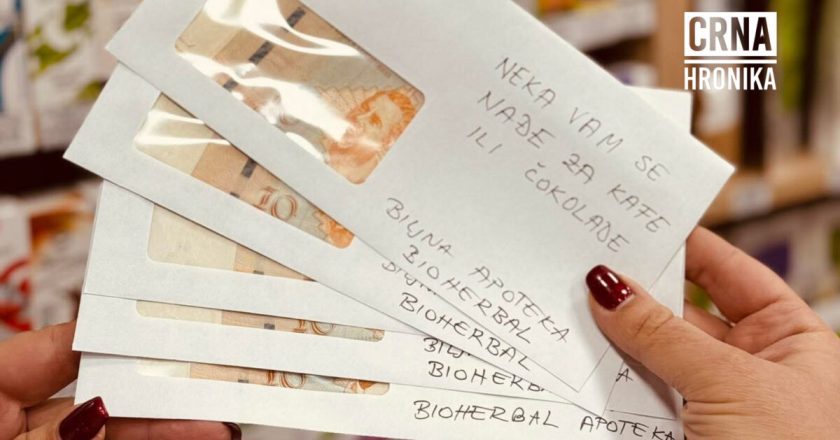 CRNA
HRONIKA
NEKA VAM SE
NAĐE ZA KAFE
ILI ČOKOLADE
BILJNA APOTEKA
BIOHERBAL
BIOHERBAL
BIOHERBAL
BIOHERBAL APOTEKA
10